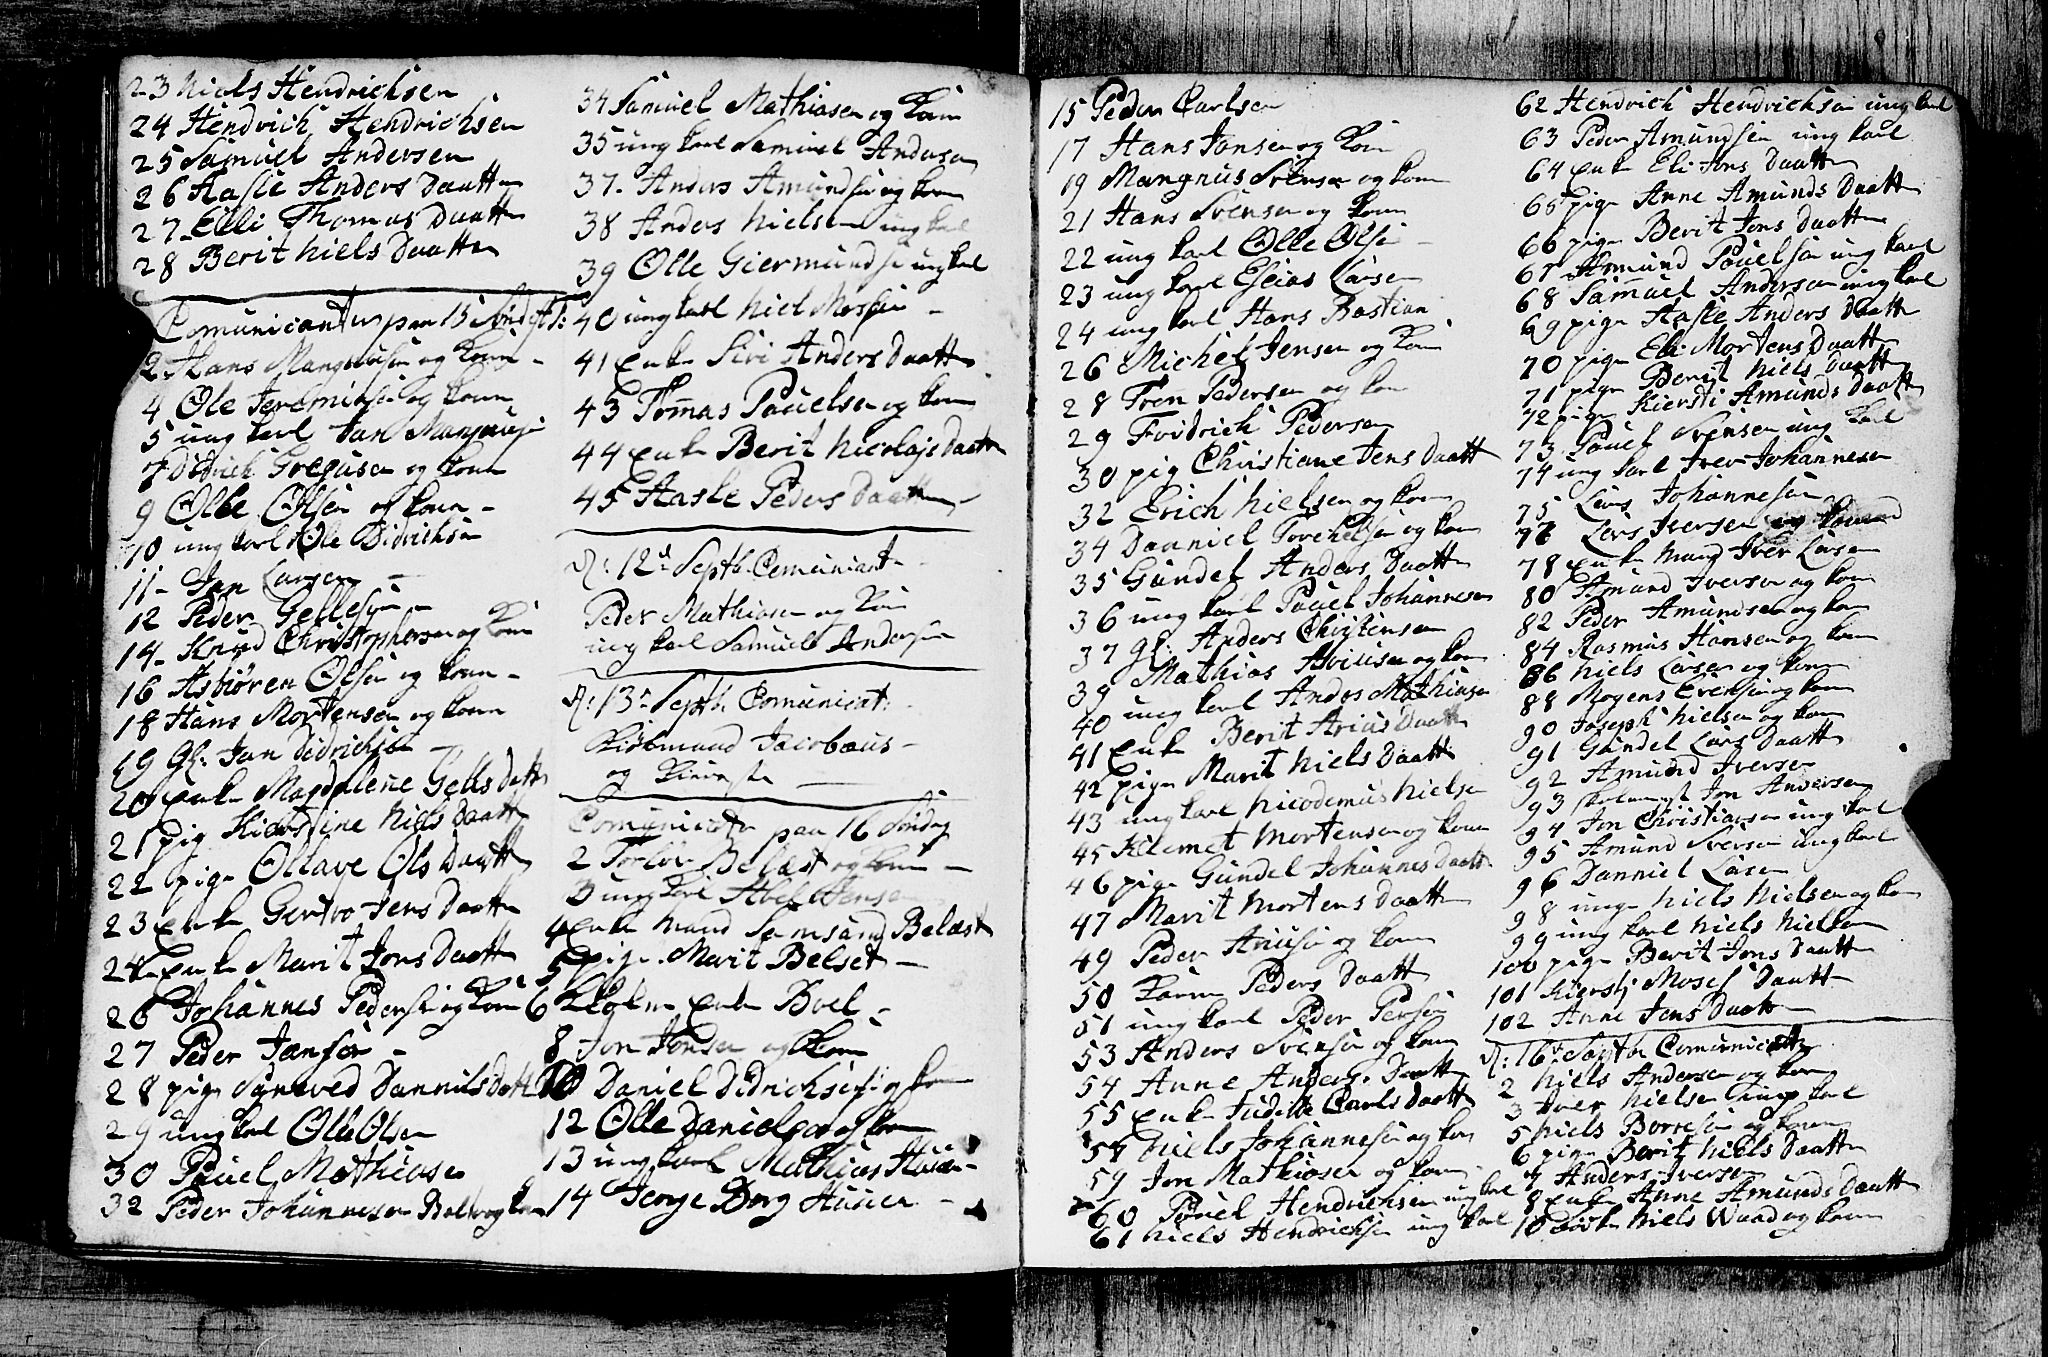 23 Niels Hendrichsen
24 Hendrich Hendrichsen
25 Samuel Andersen
26 Aasle Anders Daatt
27 Elli Thomas Daatt
28 Berit Niels Daatt
Comunicanter paa 15
2 Hans Mangnusen og Kone
4 Ole Jeremiasen og Kone
5 ung karl Jan Mangnusen
7 Didrich Gregusen og Kone
9 Olle Olsen og Kone
10 ung karl Ole Didrichsen
11 Jan Larsen
12 Peder Gellesen
14 Knud Christophersen og Kone
16 Asbiören Olsen og Kone
18 Hans Mortensen og Kone
19 Gl: Jan Didrichsen
20 Enke Magdalene Gells Datt
21 pig Kierstine Niels Daatt
22 pige Ollave Ols Daatt
23 Enke Gertro Jens Daatt
24 Enke Marit Jons Daatt
26 Johannes Pedersen og Kone
27 Peder Jansen
28 pige Daniels Datt
29 ung karl Olle Olsen
30 Pouel Mathiasen
32 Peder Johannesen
34 Samuel Mathiasen og Kone
35 ung karl Samuel Andersen
37 Anders Amundsen og Kone
38 Anders Nielsen ung karl
39 Olle Giermundsen ung karl
40 ung karl Niel
41 Enke Siri Anders Daatt
43 Tomas Pouelsen og Kone
44 Enke Berit Nicolajs Daatt
45 Aasle Peders Daatt
d: 12 Septb. Comunicant
Peder Mathiasen og Kone
ung karl Samuel Andersen
d: 13 Septb. Comunicat:
Kiöbmand Jacobæus
og Kiereste
Comunicanter paa 16 Söndag
2 Torlöv Belæst og Kone
3 ung karl Abel Jensen
4 Enke Mand Belæst
5 pige Marit Belset
6 Enke Boel
8 Jon Jonsen og Kone
10 Daniel Didrichsen og Kone
12 Olle Danielsen og Kone
13 ung karl Mathias
14 Jørge Dorg
15 Peder Carlsen
17 Hans Jonsen og Kone
19 Mangnus Svensen og Kone
21 Hans Svensen og Kone
22 ung karl Olle Olsen
23 ung karl Esaias Larsen
24 ung karl Hans Bastian
26 Michel Jensen og Kone
28 Pedersen og Kone
29 Fridrich Pedersen
30 pig Christiane Jens Daatt
32 Erich Nielsen og Kone
34 Danniel Torchelsen og Kone
35 Gundel Anders Daatt
36 ung karl Pouel Johannesen
37 gl: Anders Christensen
39 Mathias og Kone
40 ung karl Anders Mathiasen
41 Enke Berit Arius Daatt
42 pige Marit Niels Daatt
43 ung karl Nicodemus Nielsen
45 Klemet Mortensen og Kone
46 pige Gundel Johannes Daatt
47 Marit Mortens Daatt
49 Peder og Kone
50 Karen Peders Daatt
51 ung karl Peder Persen
53 Anders Svensen og Kone
54 Anne Anders Daatt
55 Enke Judithe Carls Daatt
57 Niels Johannesen og Kone
59 Jon Mathiasen og Kone
60 Pouel Hendrichsen ung karl
61 Niels Hendrichsen ung karl
62 Hendrich Hendrichsen ung karl
63 Peder Amundsen ung karl
64 Enke Eli Jons Daatt
65 pige Anne Amunds Daatt
66 pige Berit Jons Daatt
67 Amund Pouelsen ung karl
68 Samuel Andersen ung karl
69 pige Aasle Anders Daatt
70 pige Eli Mortens Daatt
71 pige Berit Niels Daatt
72 pige Kiersti Amunds Daatt
73 Pouel Svensen ung karl
74 ung karl Iver Johannesen
75 Lars Johannesen
76 Lars Iversen
78 Enke Mand Iver Larsen
80 Amund Iversen og Kone
82 Peder Amundsen og Kone
84 Rasmus Hansen og Kone
86 Niels Larsen og Kone
88 Mogens Erichsen og Kone
90 Joseph Nielsen og Kone
91 Gundel Lars Daatt
92 Amund Iversen
93 Jon Andersen
94 Jon Christiansen ung karl
95 Amund Iversen ung karl
96 Danniel Larsen
98 unge Niels Nielsen og Kone
99 ung karl Niels Nielsen
100 pige Berit Jons Daatt
101 Kiersti Moses Daatt
102 Anne Jens Daatt
d: 16 Septbr Comunicatt
2 Niels Andersen og Kone
3 Iver Nielsen ung karl
5 Niels Borresen og Kone
6 pige Berit Niels Daatt
7 Anders Iversen
8 Enke Anne Amunds Daatt
10 Niels Waad og Kone